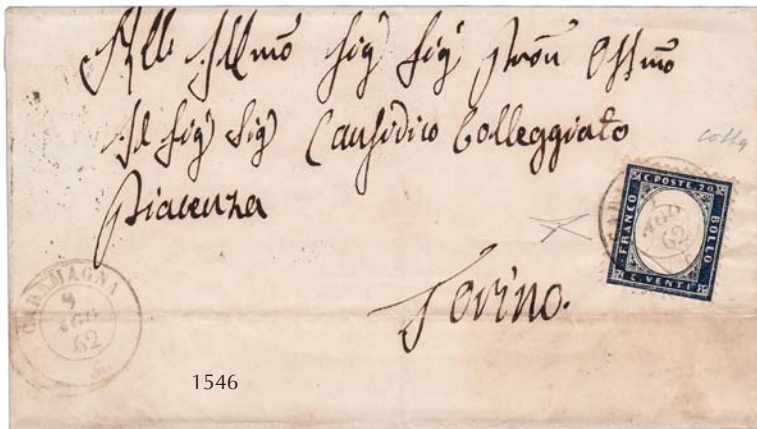 All' Ill.mo Sig.r Sig.r Pron Oss.mo
Il Sig.r Sig.r Causidico Colleggiato
Piacenza
Torino.
C. POSTE. 20
FRANCO
BOLLO
C. VENTI
AGO
62
CARAMAGNA
AGO
62
1546